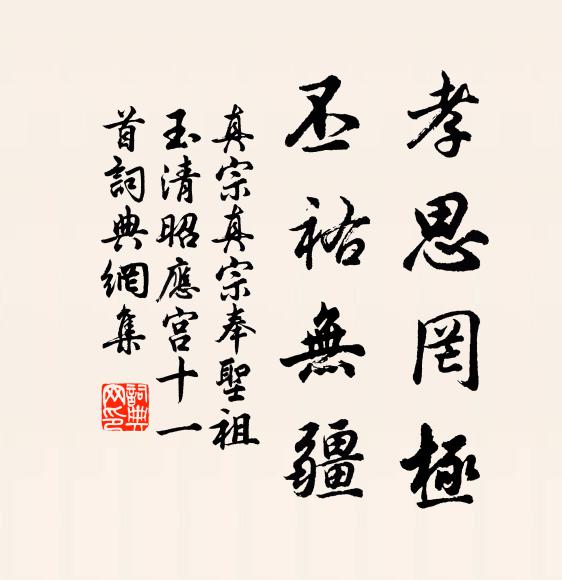 孝思罔極
丕祐無疆
真宗真宗奉聖祖
玉清昭應宮十一
首詞典網集
詞典網印